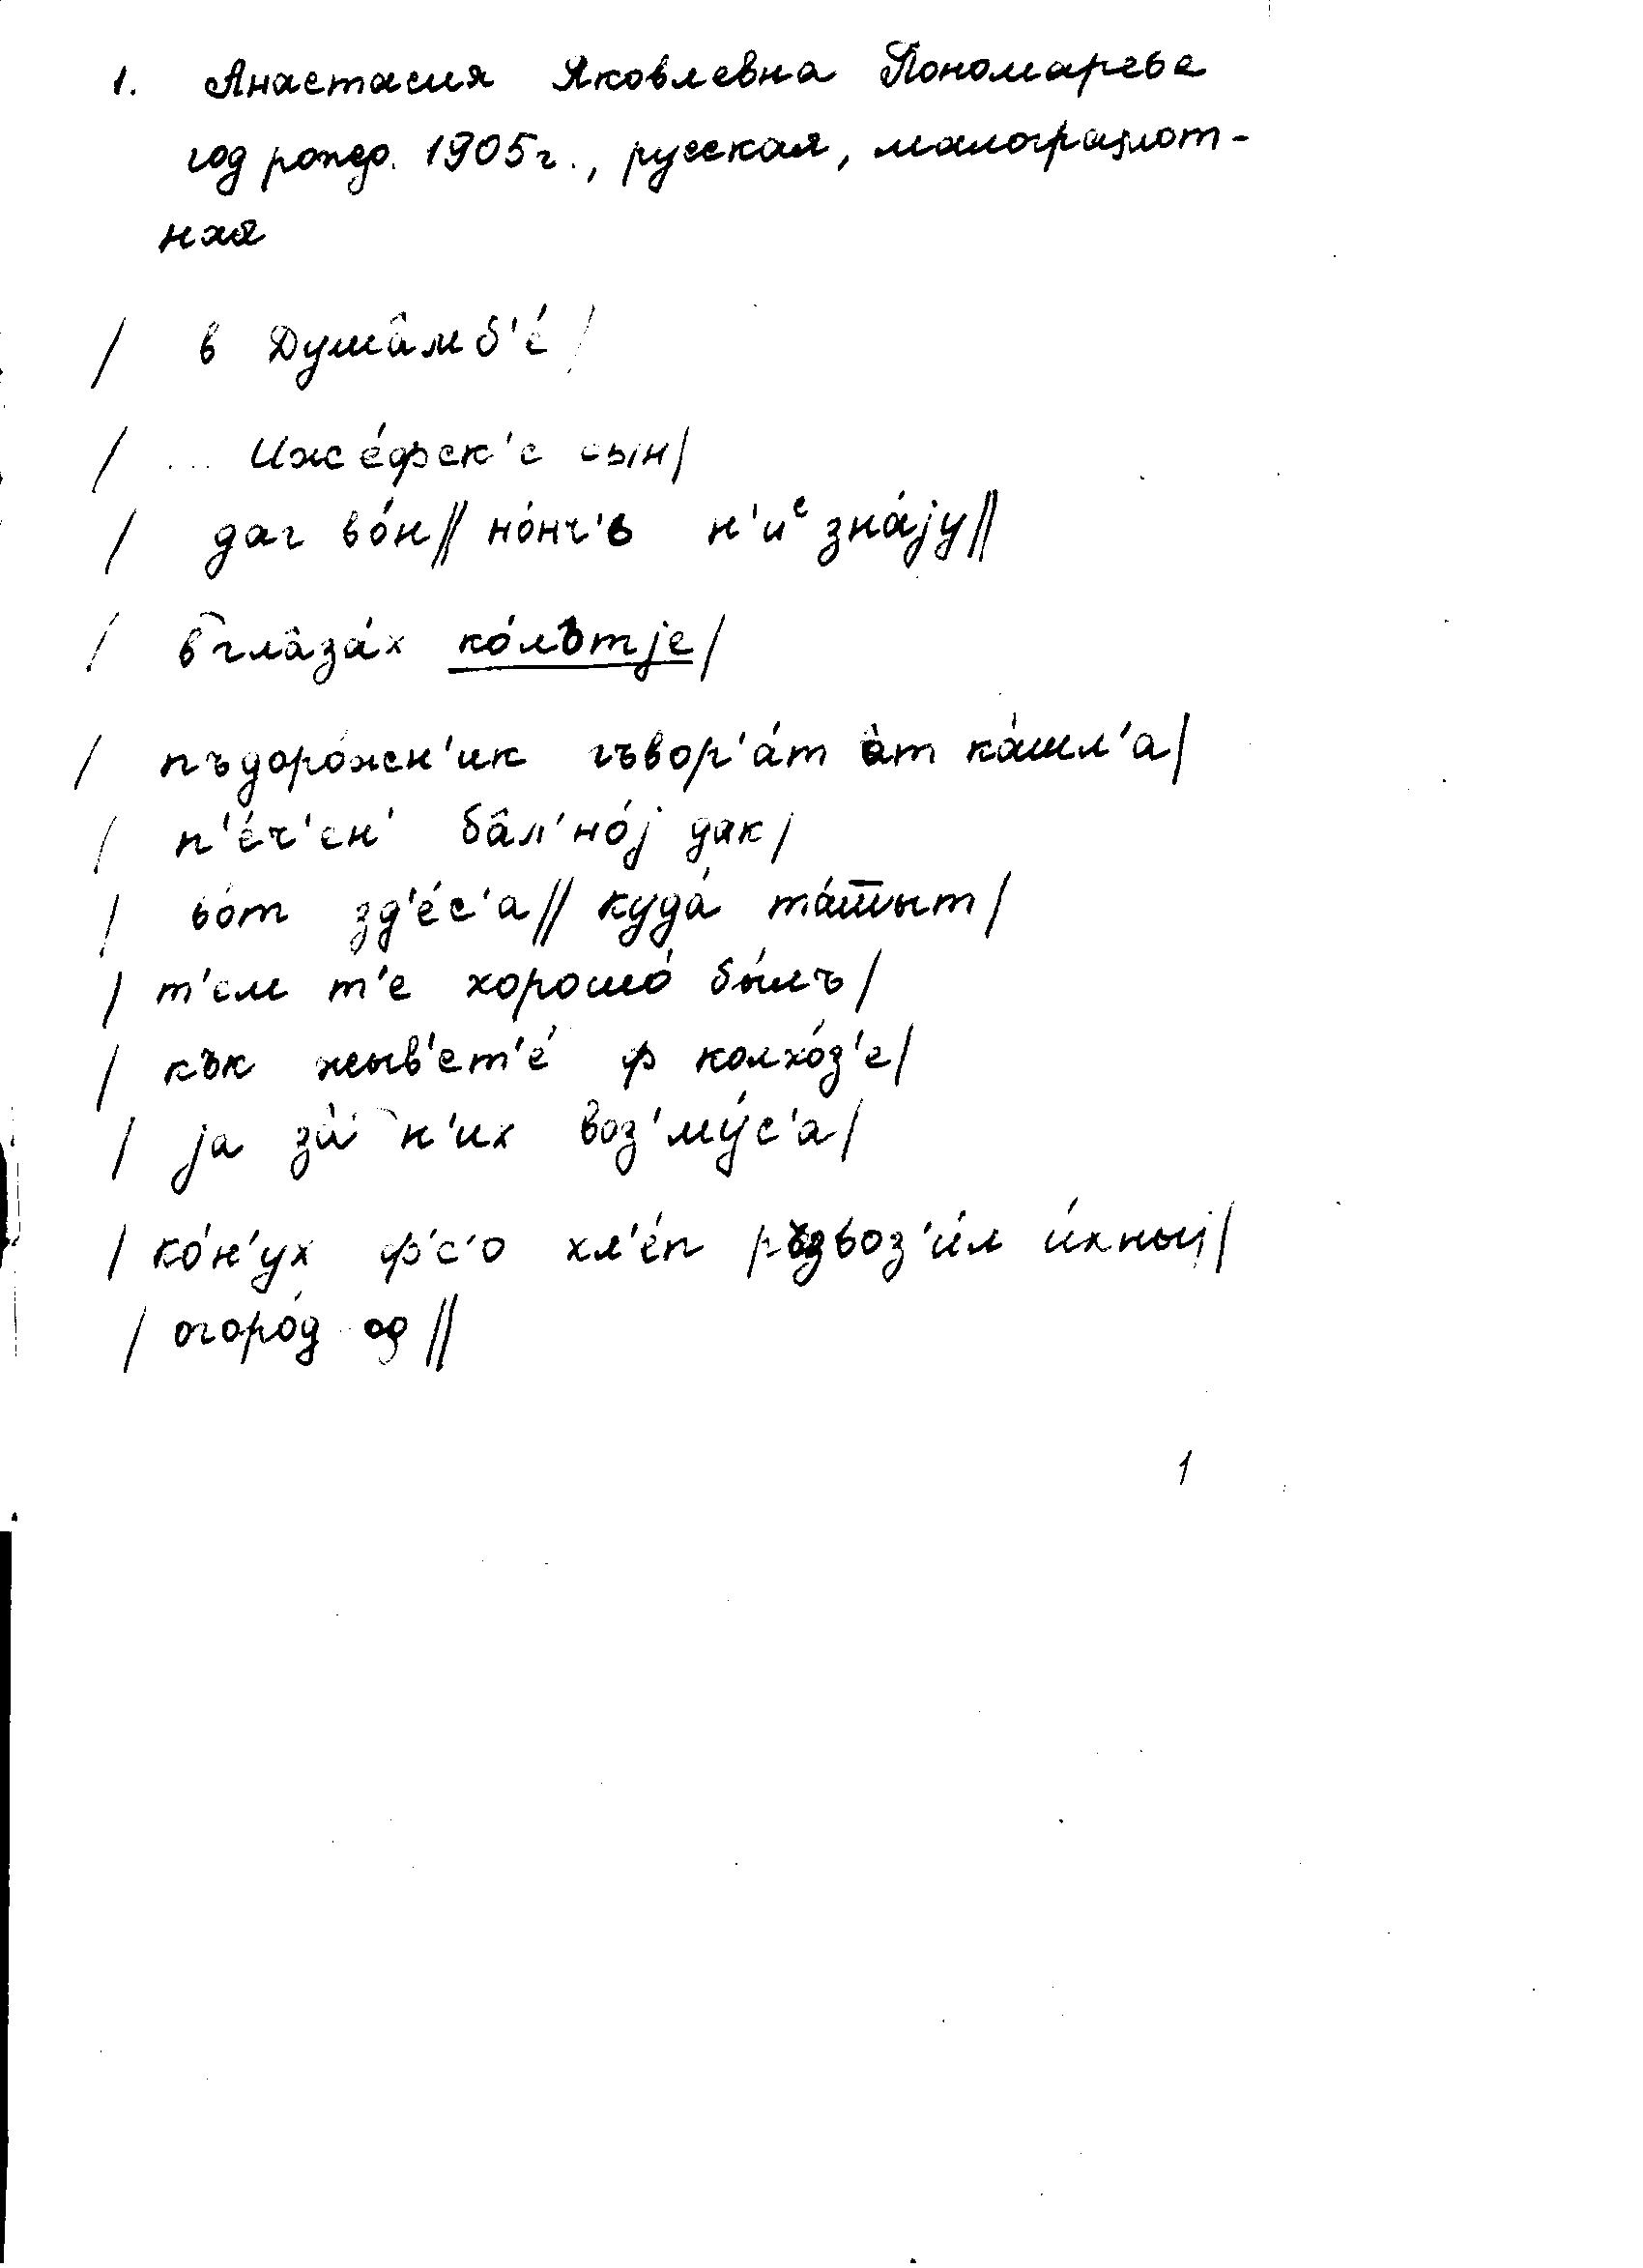 1. Анастасия Яковлевна Пономарева
год рожд. 1905 г., русская, малограмот-
ная
/ в Душâмб'é /
/ ... Ижéфск'е сын /
/ даг вóн // нóнч'ь н'иᵉ знáју //
/ в глâзáх кóлътје /
/ пъдорóжн'ик гъвор'áт âт кáшл'а /
/ п'éч'ен' бâл'нóј дак /
/ вóт зд'éс'а // кудá тáшшыт /
/ т'ем т'е хорошó бы́лъ /
/ кък жыв'ет'é ф колхóз'е /
/ ја зá н'их воз'мýс'а /
/ кóн'ух ф'с'о хл'éп ръзвоз'и́л и́хныј /
/ огорóд од //
1